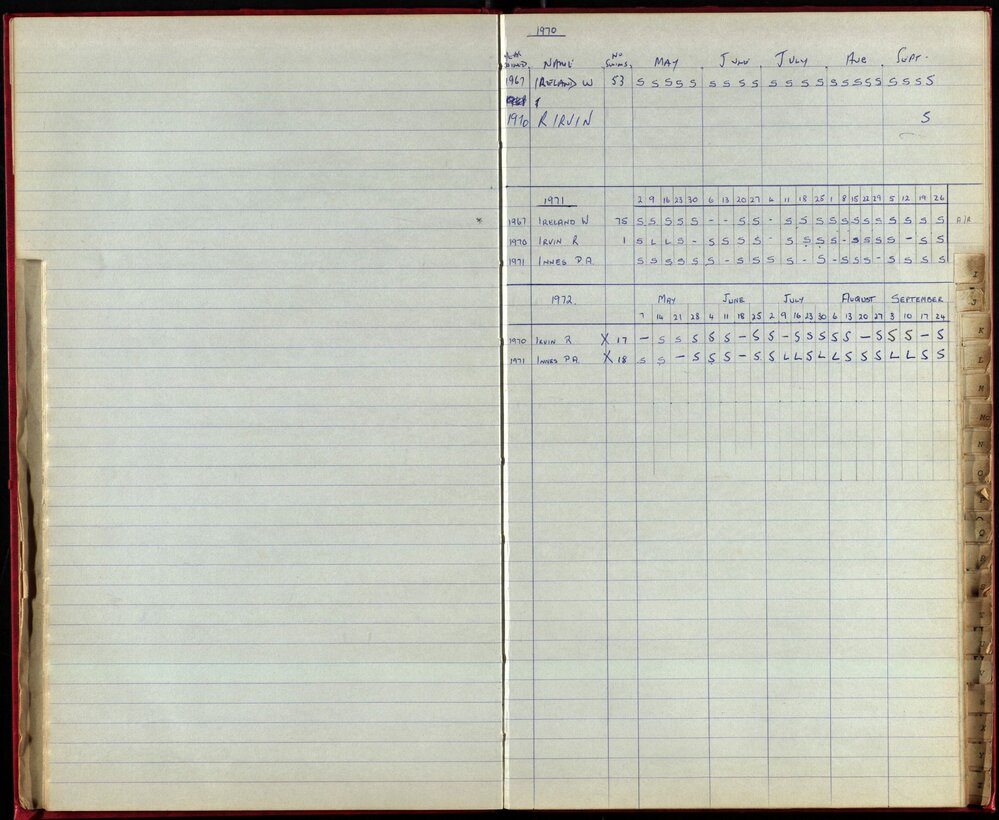 1970
YEAR JOINED NAME NO SWIMS MAY JUNE JULY AUG SEPT.
1967 IRELAND W 53 S S S S S S S S S S S S S S S S S S S S S S
1970 R IRVIN S
1971 2 9 16 23 30 6 13 20 27 4 11 18 25 1 8 15 22 29 5 12 19 26
* 1967 IRELAND W 75 S S S S S - - S S - S S S S S S S S S S S S A/R
1970 IRVIN R 1 S L L S - S S S S - S S S S - S S S S - S S
1971 INNES P.A. S S S S S S - S S S S - S - S S S - S S S S
1972. MAY JUNE JULY AUGUST SEPTEMBER
7 14 21 28 4 11 18 25 2 9 16 23 30 6 13 20 27 3 10 17 24
1970 IRVIN R X 17 - S S S S S - S S - S S S S S - S S S - S
1971 INNES P.A. X 18 S S - S S S - S S L L S L L S S S L L S S
I
J
K
L
M
Mc
N
O
Q
R
S
V
W
X
Y